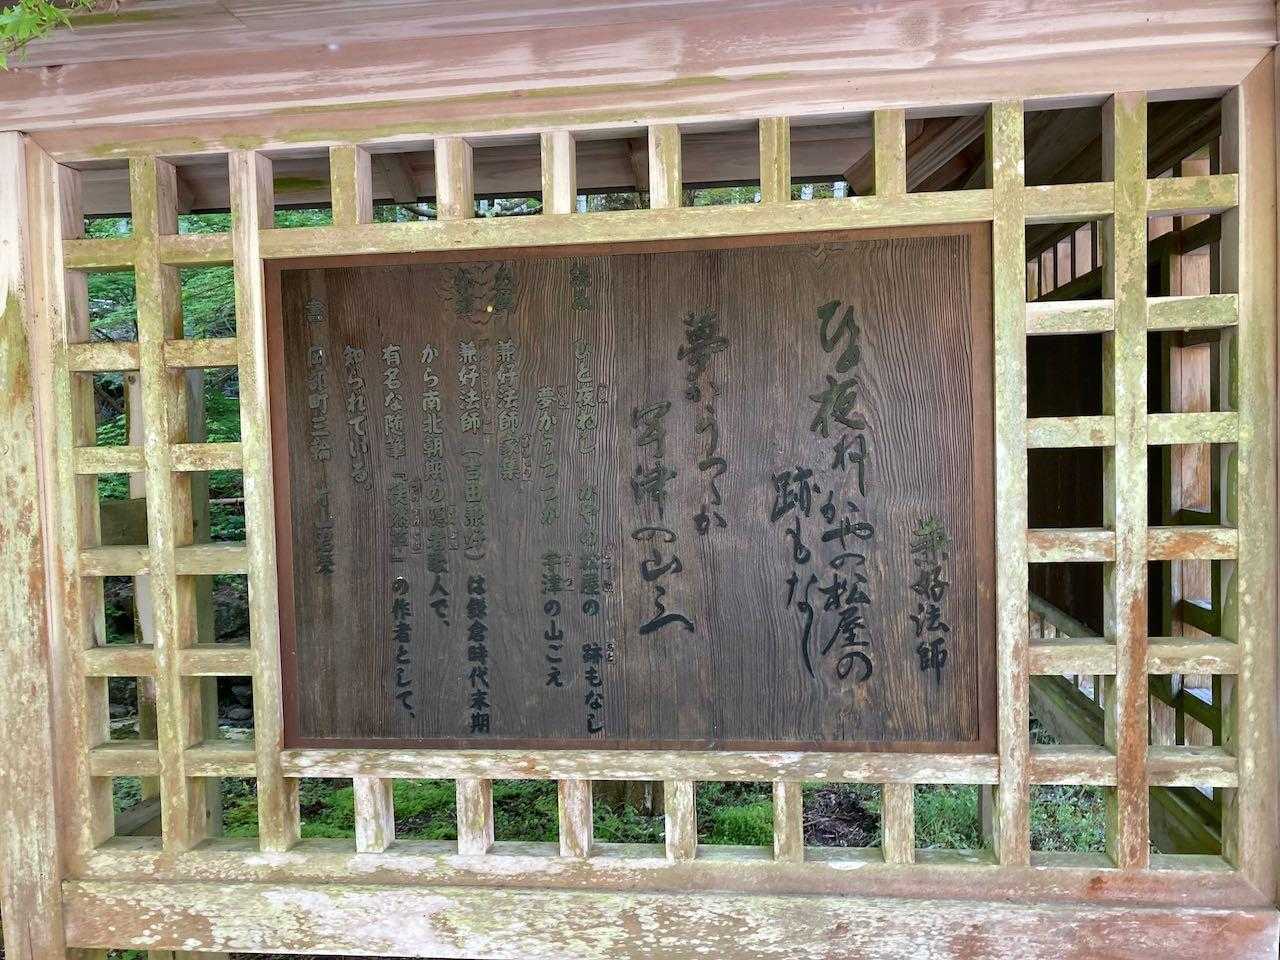 兼好法師
ひと夜ねし かやの松屋の
跡もなし
夢かうつつか
宇津の山ごへ
ひと夜ねし かやの松屋の 跡もなし
夢かうつつか 宇津の山ごえ
兼好法師家集
兼好法師（吉田兼好）は鎌倉時代末期
から南北朝期の隠者歌人で、
有名な随筆『徒然草』の作者として、
知られている。
書 岡部町三輪